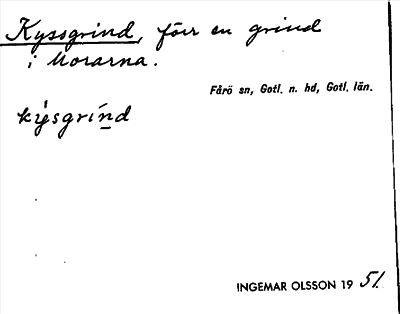 Kyssgrind, förr en grind
i Morarna.
Fårö sn, Gotl. n. hd, Gotl. län.
kýsgrín̲d
INGEMAR OLSSON 19 51.